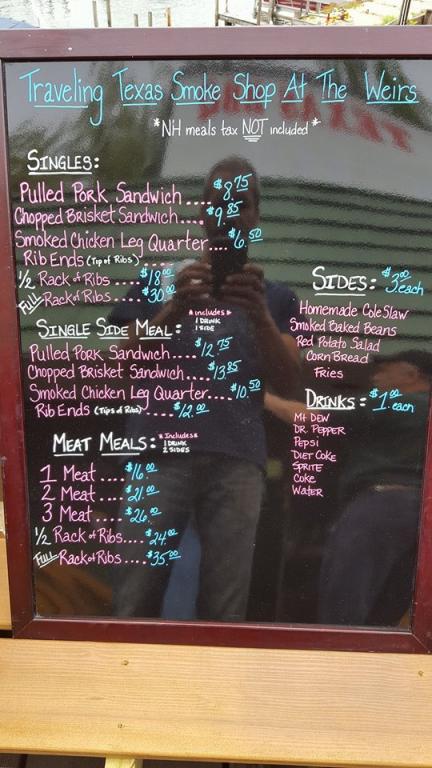 Traveling Texas Smoke Shop At The Weirs
*NH meals tax NOT included*
SINGLES:
Pulled Pork Sandwich.... $8.75
Chopped Brisket Sandwich.... $9.85
Smoked Chicken Leg Quarter.... $6.50
Rib Ends (Tip of Ribs)
1/2 Rack of Ribs... $18.00
FULL Rack of Ribs... $30.00
SINGLE SIDE MEAL: *includes*
1 DRINK
1 SIDE
Pulled Pork Sandwich.... $12.75
Chopped Brisket Sandwich.... $13.85
Smoked Chicken Leg Quarter.... $10.50
Rib Ends (Tips of Ribs)... $12.00
MEAT MEALS: *Includes*
1 DRINK
2 SIDES
1 Meat .... $16.00
2 Meat .... $21.00
3 Meat .... $26.00
1/2 Rack of Ribs.... $24.00
FULL Rack of Ribs.... $35.00
SIDES: $3.00 each
Homemade Cole Slaw
Smoked Baked Beans
Red Potato Salad
Corn Bread
Fries
DRINKS: $1.00 each
Mt DEW
DR. PEPPER
Pepsi
DIET COKE
SPRITE
Coke
Water